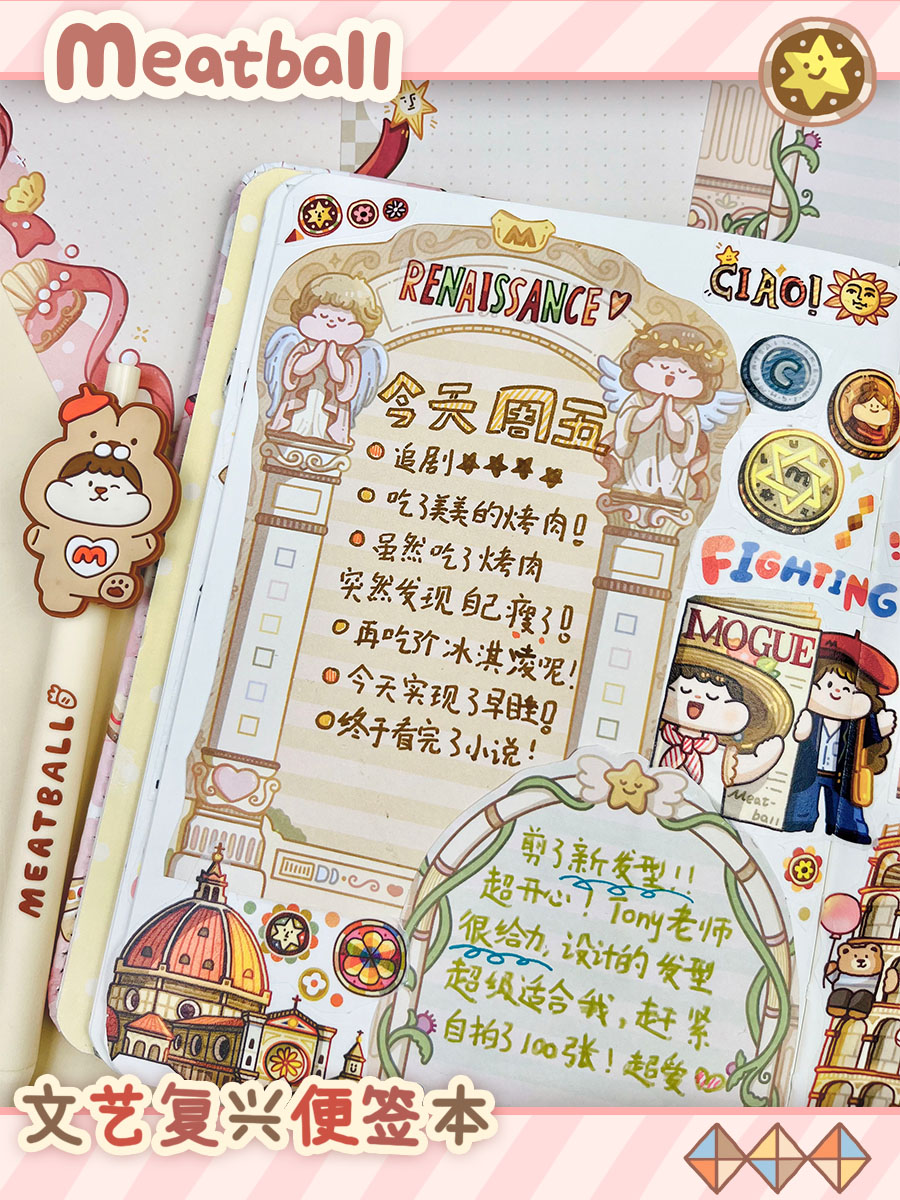 Meatball
RENAISSANCE
CIAO!
今天周五
追剧
吃了美美的烤肉!
虽然吃了烤肉
突然发现自己瘦了!
再吃个冰淇凌呢!
今天实现了早睡!
终于看完了小说!
FIGHTING
MOGUE
Meat-
ball
M
M
C
M
MEATBALL
剪了新发型!!
超开心! Tony老师
很给力,设计的发型
超级适合我,赶紧
自拍了100张!超爱
文艺复兴便签本